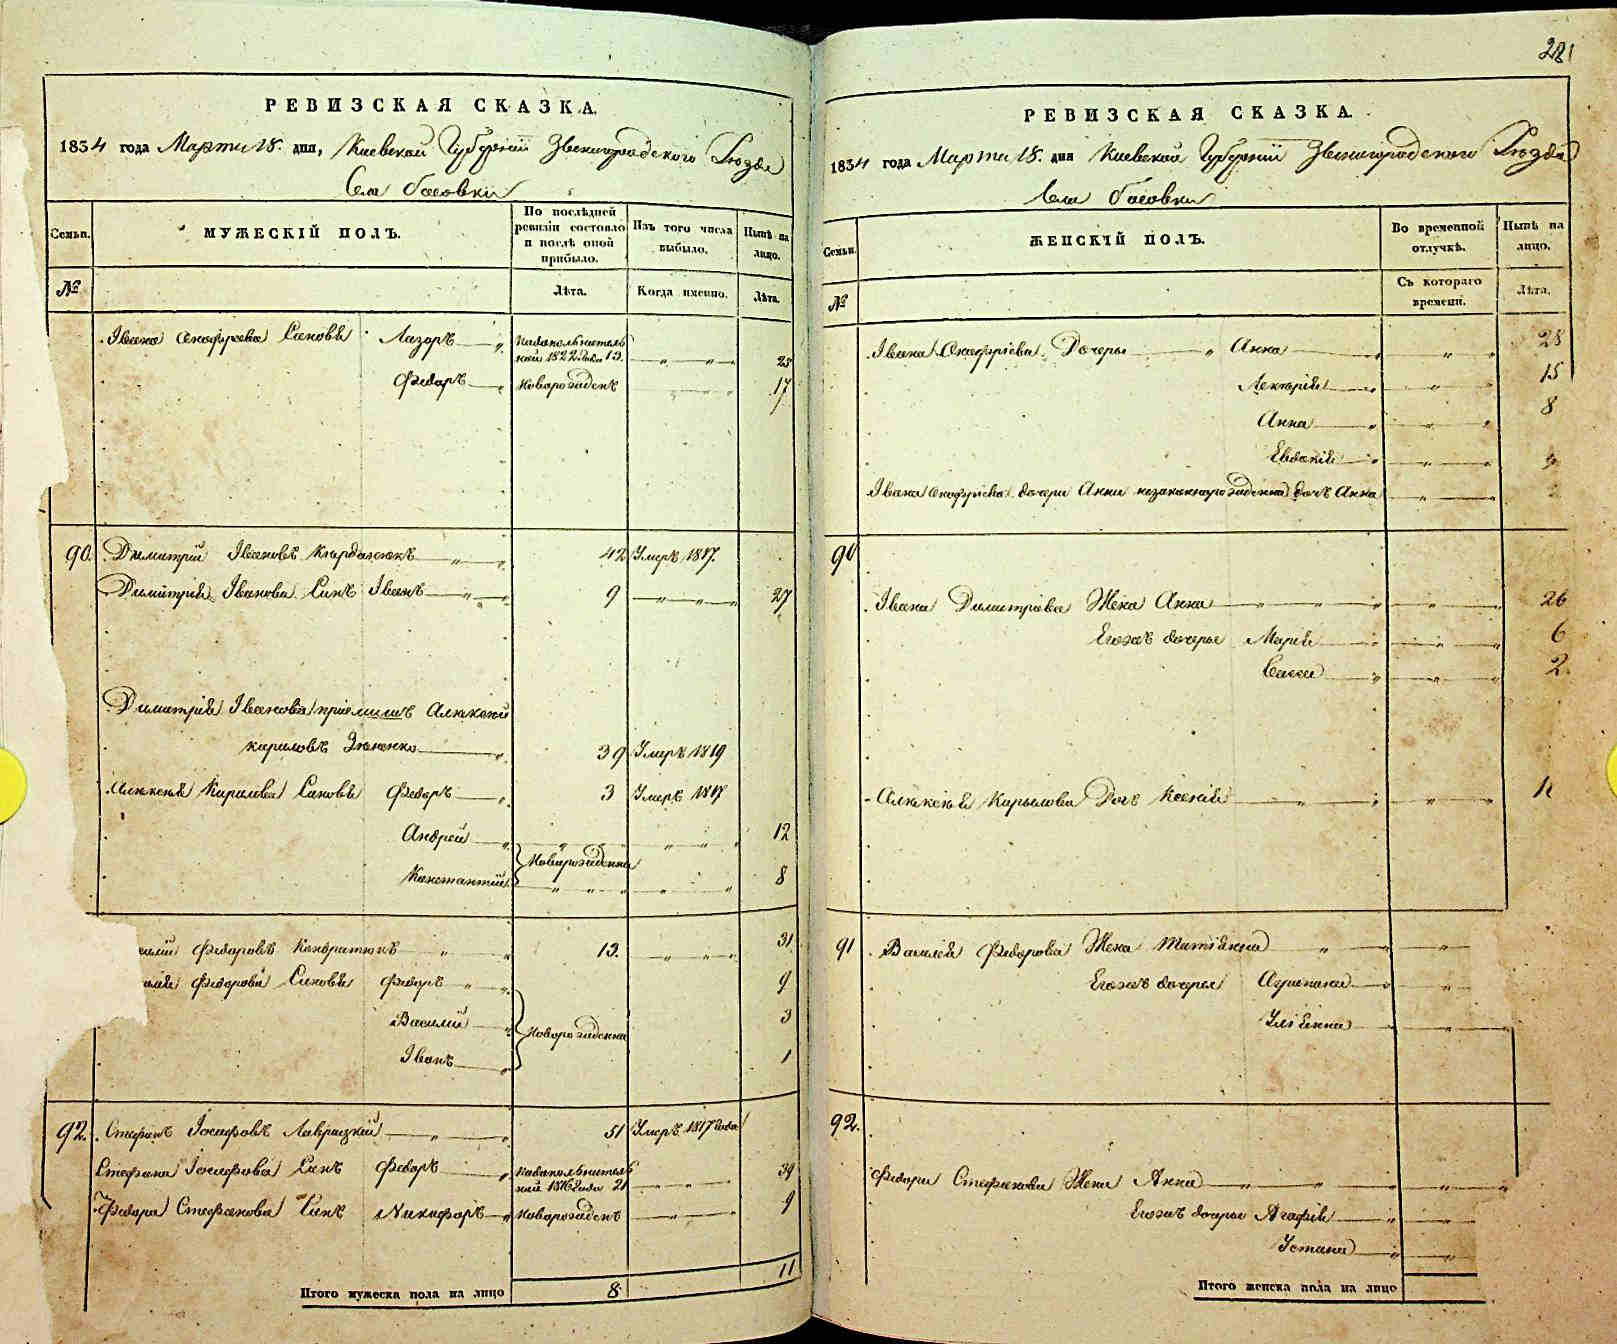 281
РЕВИЗСКАЯ СКАЗКА.
1834 года Марта 18. дня, Киевской Губерніи Звенигородского Уѣзда
Села Басовки
Семьи.
МУЖЕСКІЙ ПОЛЪ.
По послѣдней ревизіи состояло и послѣ оной прибыло.
Изъ того числа выбыло.
Нынѣ на лицо.
№
Лѣта.
Когда именно.
Лѣта.
Івана Онофріева Сыновья Лазоръ По дополнительной 1822 года 13. 25
Федоръ Новорожденъ 17
90. Димитрій Івановъ 42 Умеръ 1817.
Димитрія Іванова Сынъ Іванъ 9 27
Димитрія Іванова приймышъ Алексей
Кириловъ 39 Умеръ 1819
Алексея Кирилова Сыновья Федоръ 3 Умеръ 1817
Андрей 12
Новорожденны
Константий 8
Федоровъ Кондратюкъ 13. 31
Федорова Сыновья Федоръ 9
Василий 3
Новорожденны
Іванъ 1
92. Стефанъ Іосифовъ Лаврицкий 51 Умеръ 1817 года
Стефана Іосифова Сынъ Федоръ По дополнительной 1816 года 21 39
Федора Стефанова Сынъ Никифоръ Новорожденъ 9
Итого мужеска пола на лицо 8. 11
РЕВИЗСКАЯ СКАЗКА.
1834 года Марта 18. дня Киевской Губерніи Звенигородского Уѣзда
Села Басовки
Семьи.
ЖЕНСКІЙ ПОЛЪ.
Во временной отлучкѣ.
Нынѣ на лицо.
№
Съ котораго времени.
Лѣта.
Івана Онофріева Дочеры Анна 28
15
Анна 8
Евдокія
Івана Онофріева дочери Анны незаконнорожденна дочъ Анна
90
Івана Димитріева Жена Анна 26
Егожъ дочеры Марія 6
2.
Алексея Кирылова Дочъ Ксенія
91 Василія Федорова Жена Татіянна
Егожъ дочеры
Уліянна
92.
Федора Стефанова Жена Анна
Егожъ дочеры Агафія
Устина
Итого женска пола на лицо